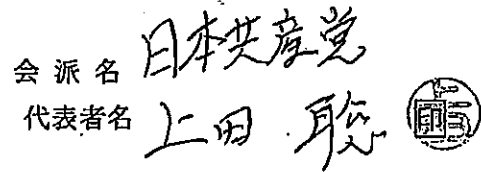 会派名 日本共産党
代表者名 上田 聡